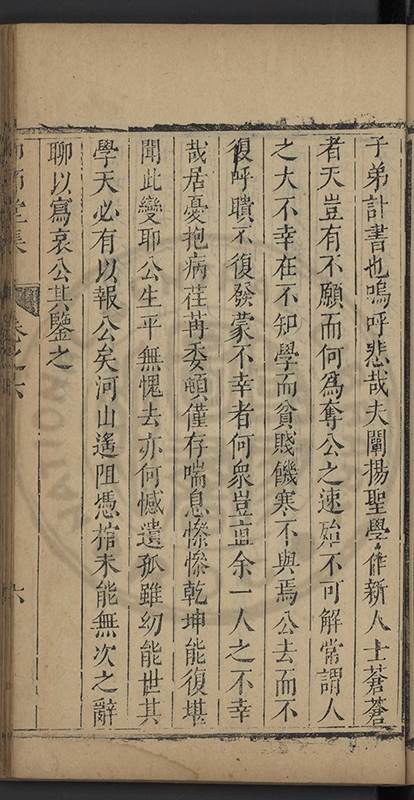 子弟計書也嗚呼悲哉夫闡揚聖學作新人士蒼蒼
者天豈有不願而何爲奪公之速殆不可解常謂人
之大不幸在不知學而貧賤饑寒不與焉公去而不
復呼聵不復發蒙不幸者何衆豈直余一人之不幸
哉居憂抱病荏苒委頓僅存喘息慘慘乾坤能復堪
聞此變耶公生平無愧去亦何憾遺孤雖幼能世其
學天必有以報公矣河山遙阻憑棺未能無次之辭
聊以寫哀公其鑒之
堂集
卷之六
六